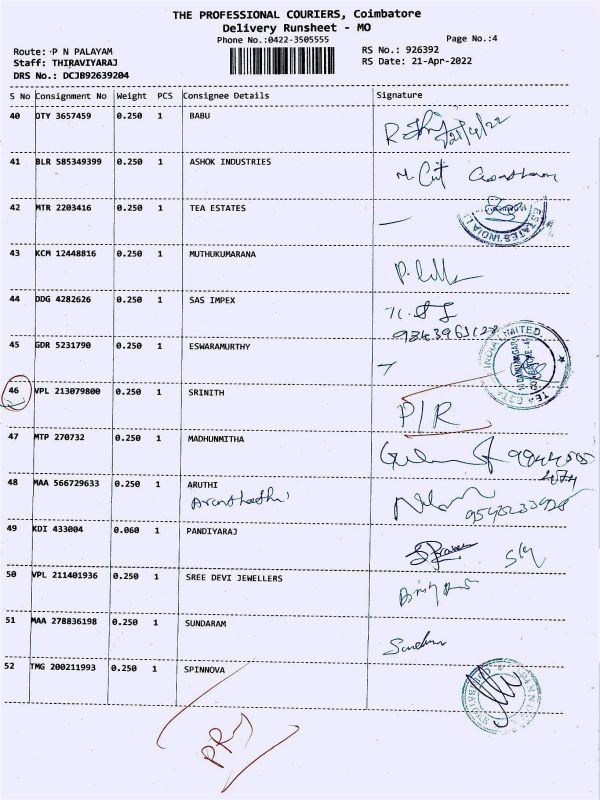 THE PROFESSIONAL COURIERS, Coimbatore
Delivery Runsheet - MO
Phone No.:0422-3505555
Page No.:4
Route: P N PALAYAM
RS No.: 926392
Staff: THIRAVIYARAJ
RS Date: 21-Apr-2022
DRS No.: DCJB92639204
S No Consignment No Weight PCS Consignee Details Signature
40 OTY 3657459 0.250 1 BABU
21/4/22
41 BLR 585349399 0.250 1 ASHOK INDUSTRIES
42 MTR 2203416 0.250 1 TEA ESTATES
43 KCM 12448816 0.250 1 MUTHUKUMARANA
44 DDG 4282626 0.250 1 SAS IMPEX
45 GDR 5231790 0.250 1 ESWARAMURTHY
46 VPL 213079800 0.250 1 SRINITH
P/R
47 MTP 270732 0.250 1 MADHUNMITHA
48 MAA 566729633 0.250 1 ARUTHI
49 KDI 433004 0.060 1 PANDIYARAJ
50 VPL 211401936 0.250 1 SREE DEVI JEWELLERS
51 MAA 278836198 0.250 1 SUNDARAM
52 TMG 200211993 0.250 1 SPINNOVA